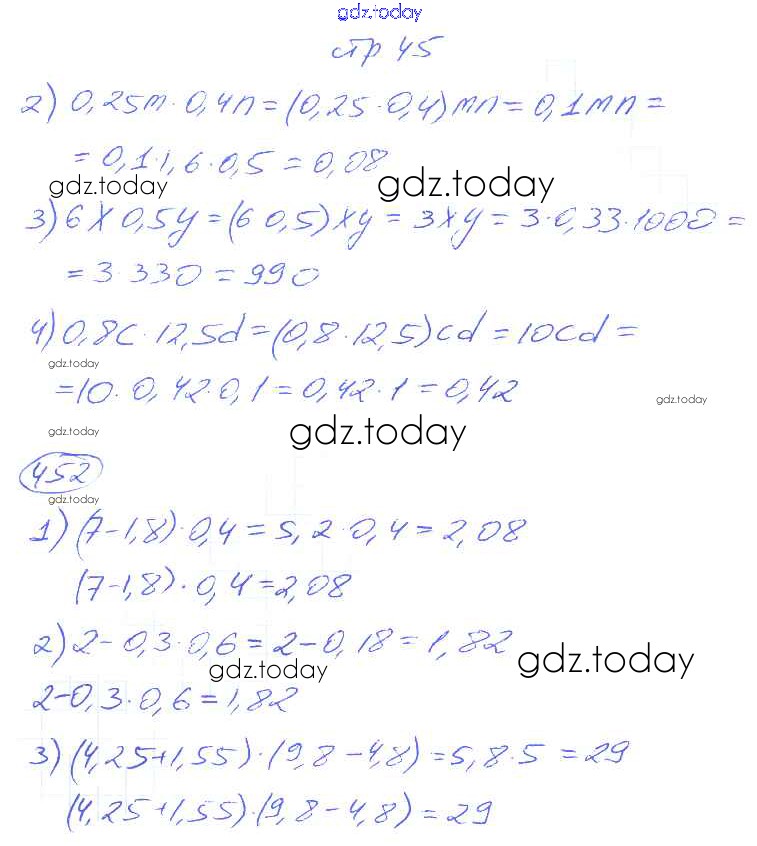 gdz.today
стр 45
2) 0,25m · 0,4n = (0,25 · 0,4) mn = 0,1mn =
= 0,1 · 1,6 · 0,5 = 0,08
gdz.today gdz.today
3) 6x 0,5y = (6 0,5) xy = 3xy = 3 · 0,33 · 1000 =
= 3 · 330 = 990
4) 0,8c · 12,5d = (0,8 · 12,5) cd = 10cd =
gdz.today
= 10 · 0,42 · 0,1 = 0,42 · 1 = 0,42
gdz.today
gdz.today gdz.today
452
gdz.today
1) (7-1,8) · 0,4 = 5,2 · 0,4 = 2,08
(7-1,8) · 0,4 = 2,08
2) 2 - 0,3 · 0,6 = 2 - 0,18 = 1,82
gdz.today gdz.today
2-0,3 · 0,6 = 1,82
3) (4,25+1,55) · (9,8-4,8) = 5,8 · 5 = 29
(4,25+1,55) · (9,8-4,8) = 29